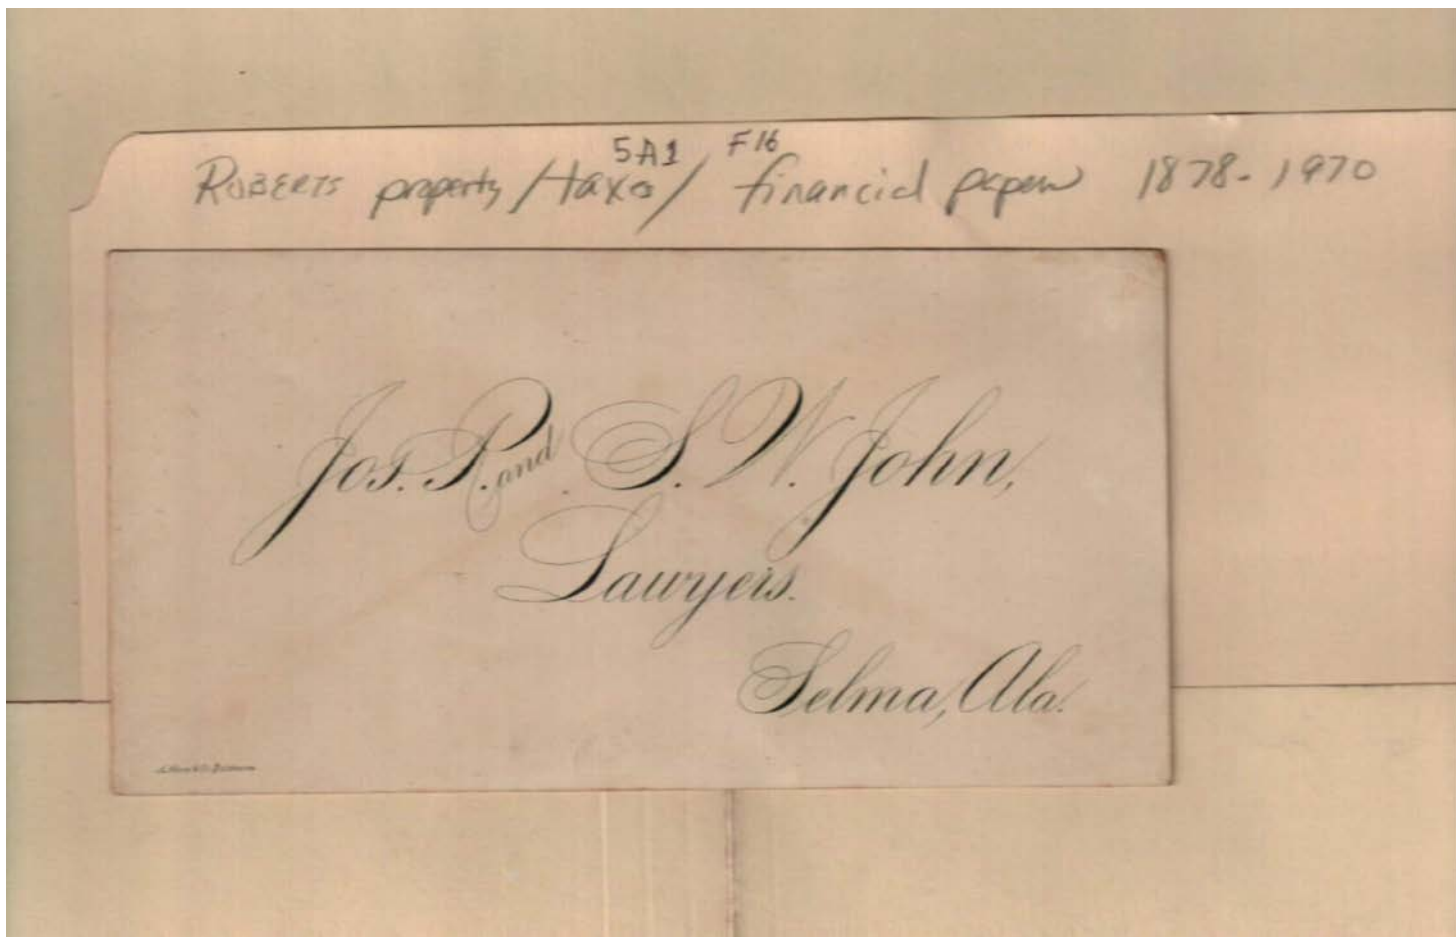 5A1 F16
ROBERTS property/taxes/ financial papers 1878-1970
Jos. P. and S. W. John,
Lawyers.
Selma, Ala.